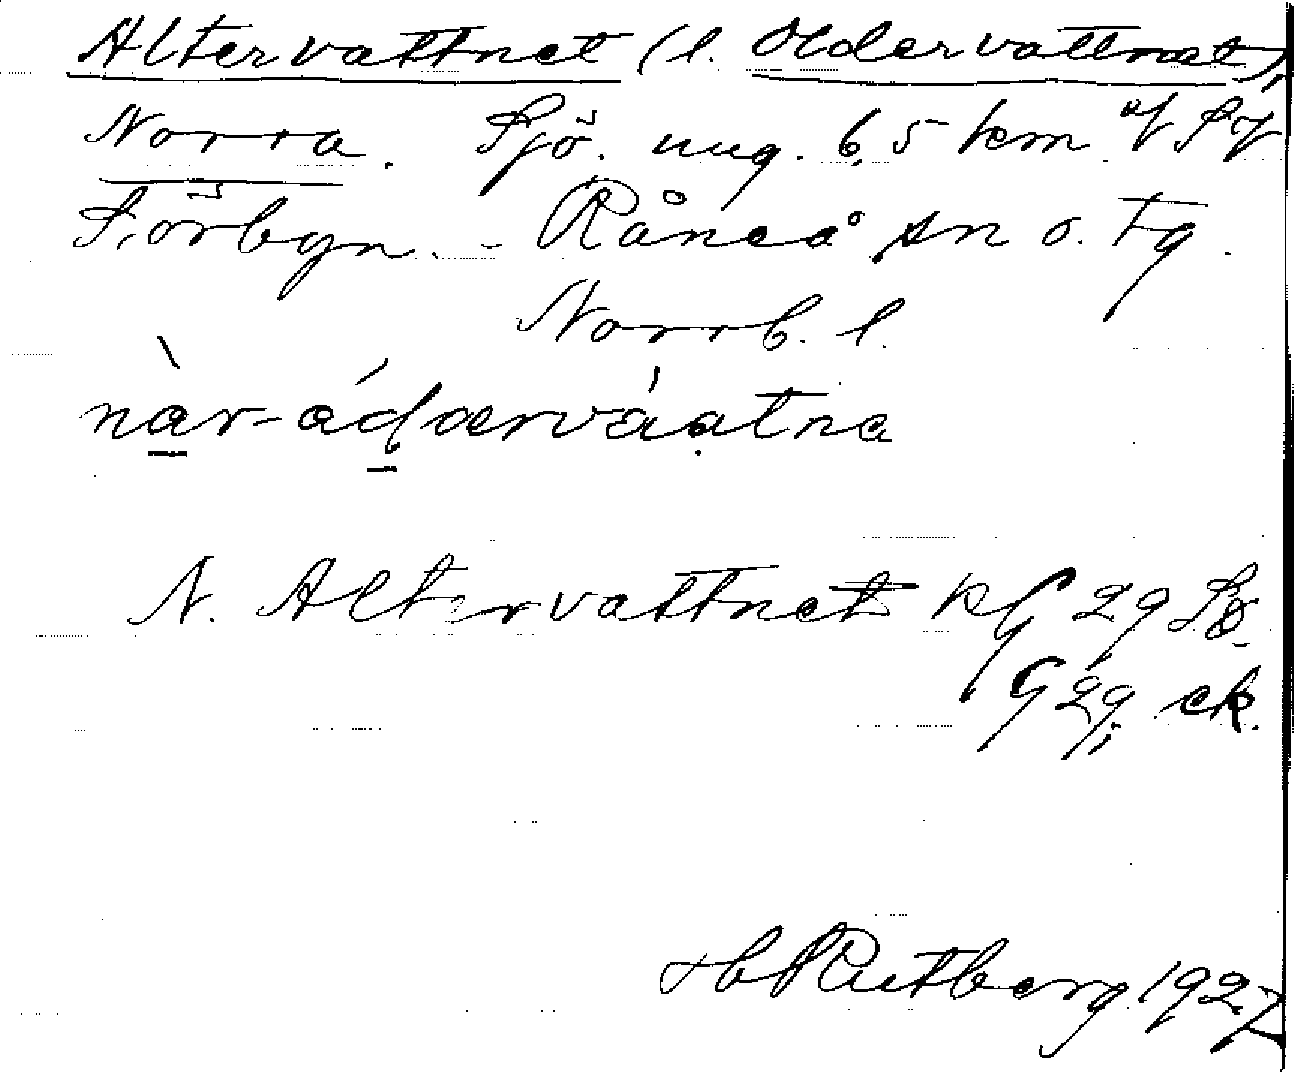 Altervattnet (l. Oldervattnet),
Norra. Sjö. ung. 6,5 km
Sörbyn. - Råneå sn o. tg.
Norrb. l.
nàr-ádærváatna
N. Altervattnet 29 SO
29i ek.
H Rutberg 1927